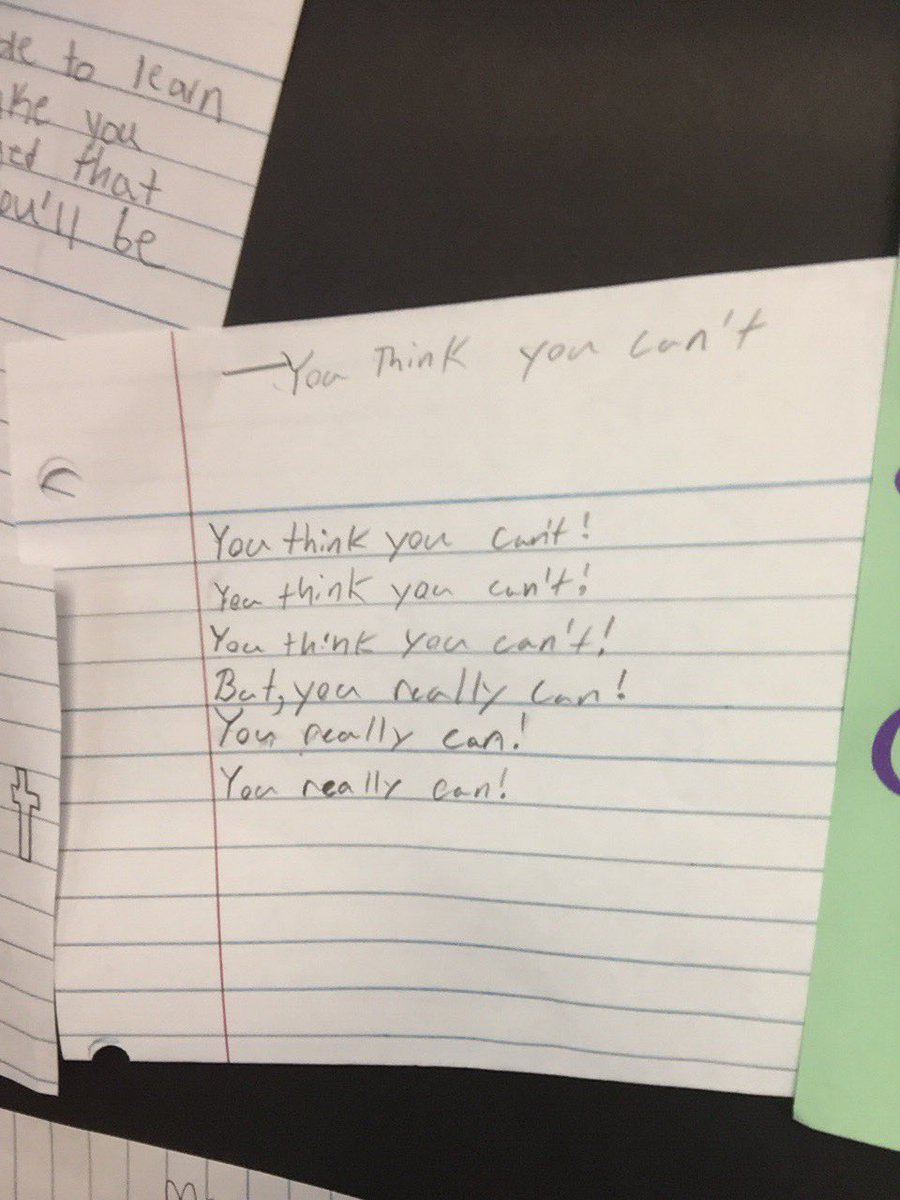 to learn
you
that
you'll be
—You Think you can't
You think you can't!
You think you can't!
You think you can't!
But, you really can!
You really can!
You really can!